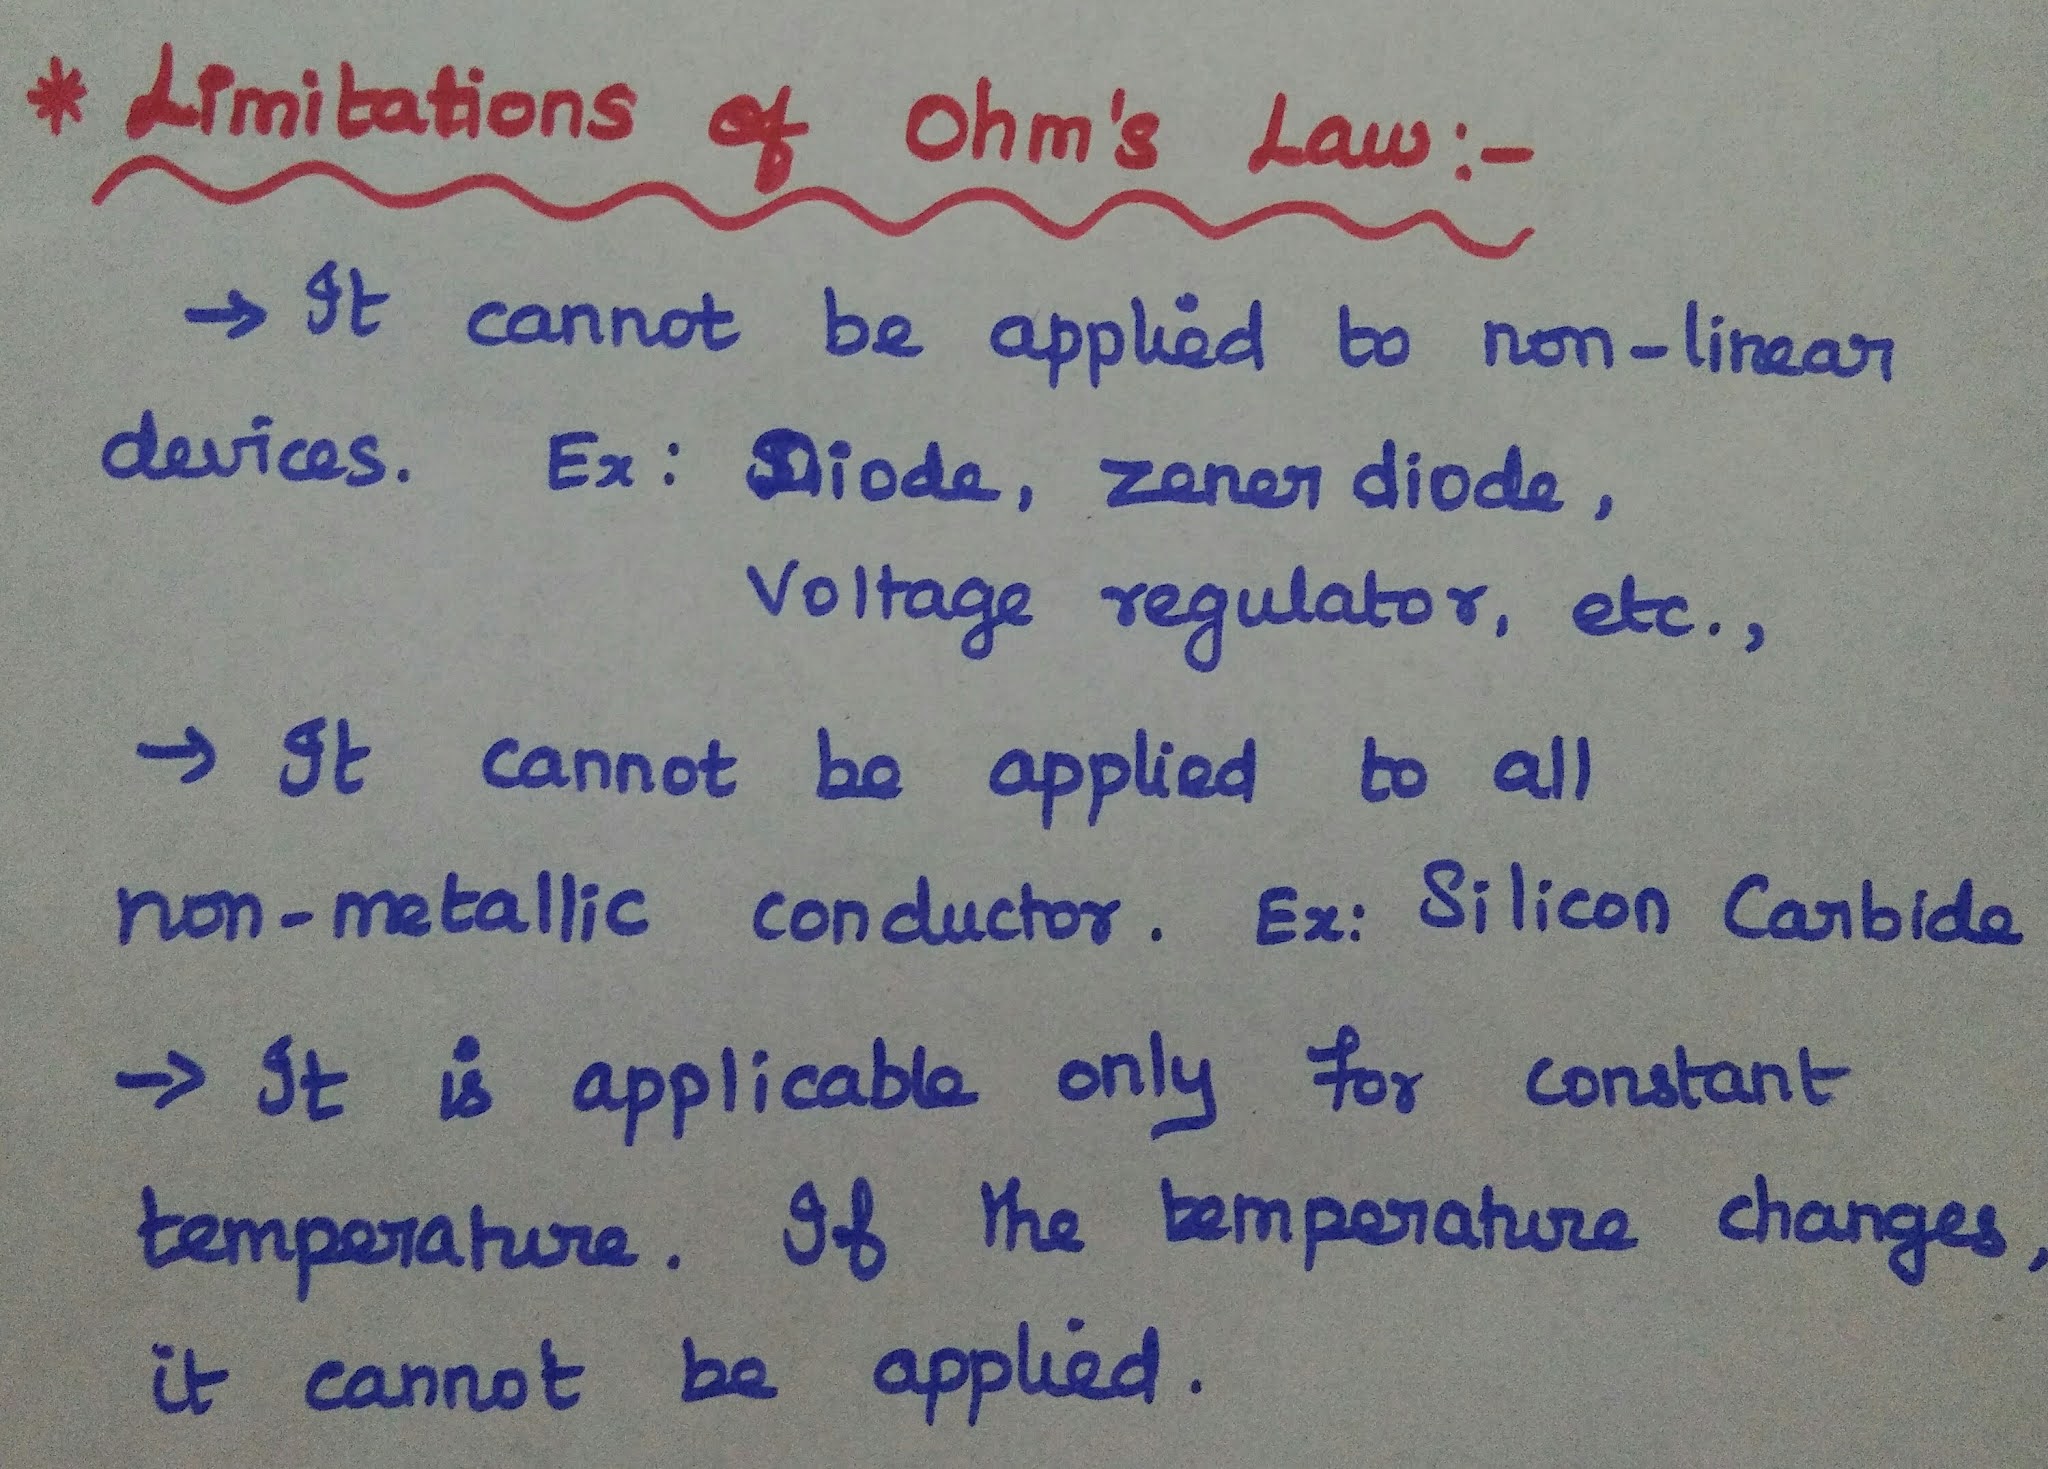 * Limitations of Ohm's Law:-
→ It cannot be applied to non-linear
devices. Ex: Diode, zener diode,
Voltage regulator, etc.,
→ It cannot be applied to all
non-metallic conductor. Ex: Silicon Carbide
→ It is applicable only for constant
temperature. If the temperature changes,
it cannot be applied.